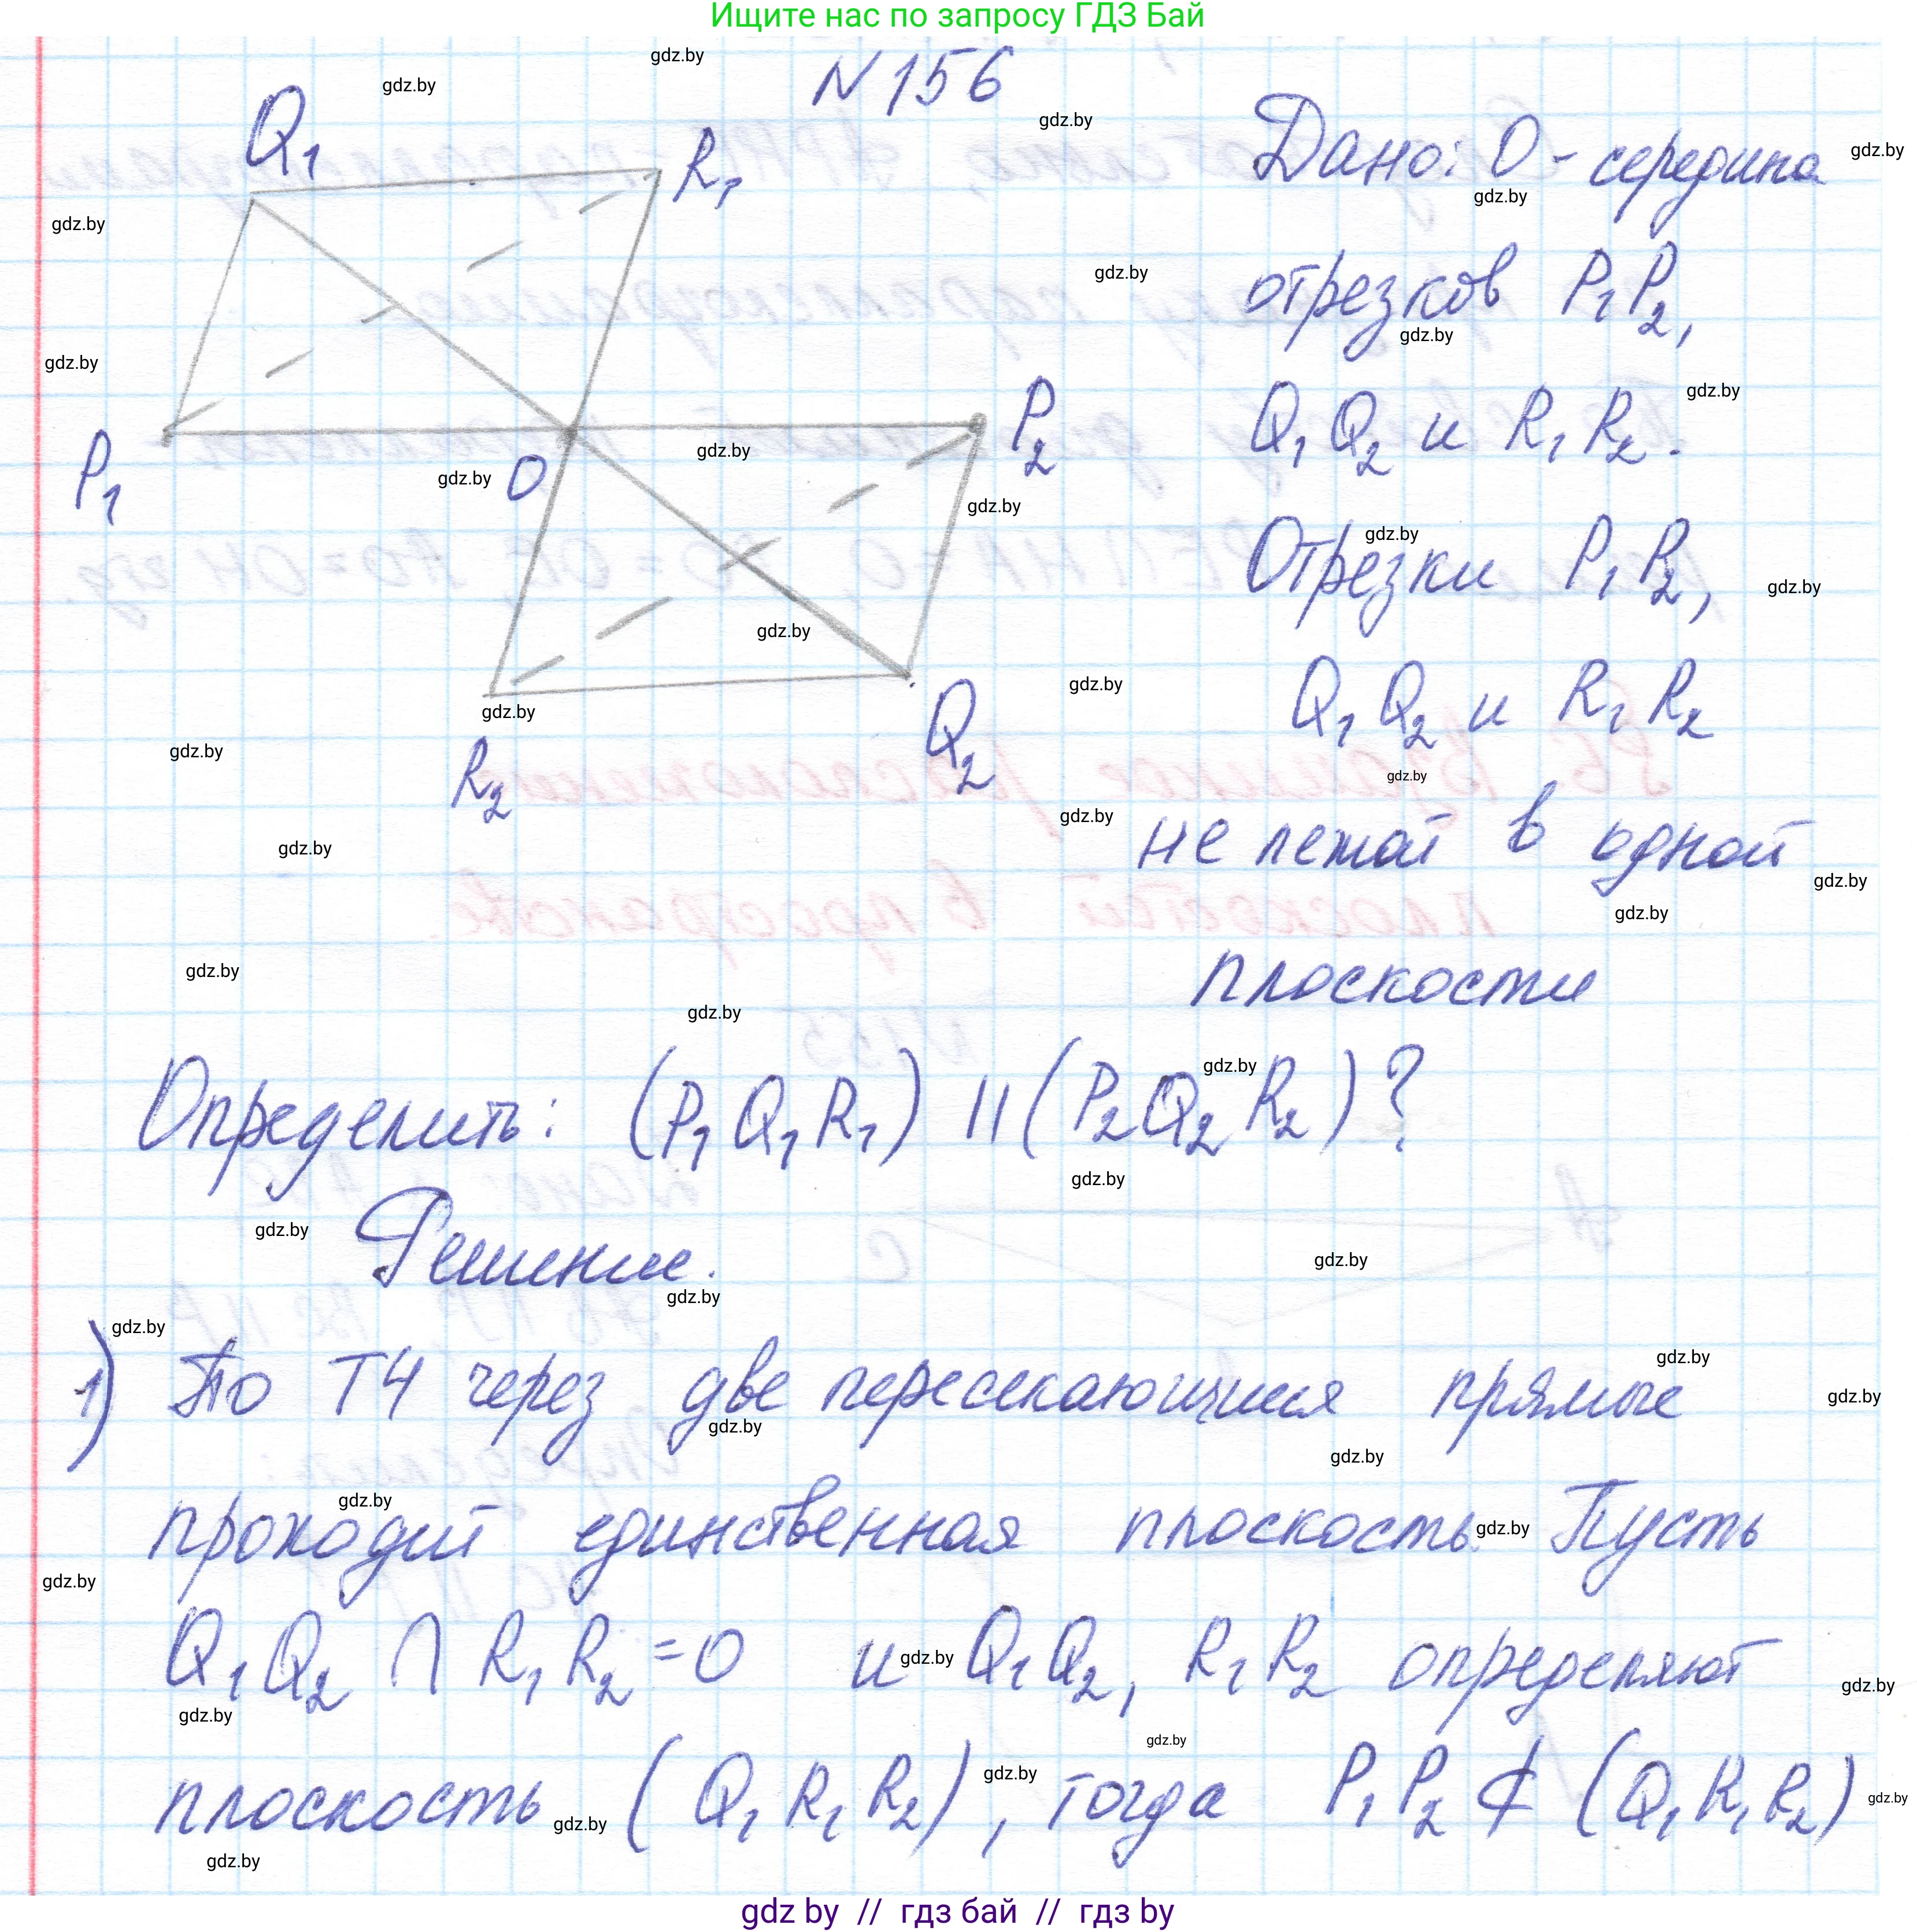 Ищите нас по запросу ГДЗ Бай
N 156
Q1
R1
P1
O
P2
R2
Q2
Дано: O - середина
отрезков P1P2,
Q1Q2 и R1R2.
Отрезки P1P2,
Q1Q2 и R1R2
не лежат в одной
плоскости
Определить: (P1Q1R1) || (P2Q2R2)?
Решение.
1) По Т4 через две пересекающиеся прямые
проходит единственная плоскость. Пусть
Q1Q2 ∩ R1R2 = O и Q1Q2, R1R2 определяют
плоскость (Q1R1R2), тогда P1P2 ⊄ (Q1R1R2)
gdz.by
gdz by // гдз бай // гдз by